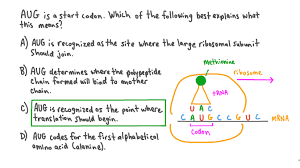 AUG is a start codon. Which of the following best explains what
this means?
A) AUG is recognized as the site where the large ribosomal subunit
should join.
B) AUG determines where the polypeptide
chain formed will bind to another
chain.
C) AUG is recognized as the point where
translation should begin.
D) AUG codes for the first alphabetical
amino acid (alanine).
Methionine
ribosome
tRNA
U A C
C A U G C C G U C
mRNA
Codon